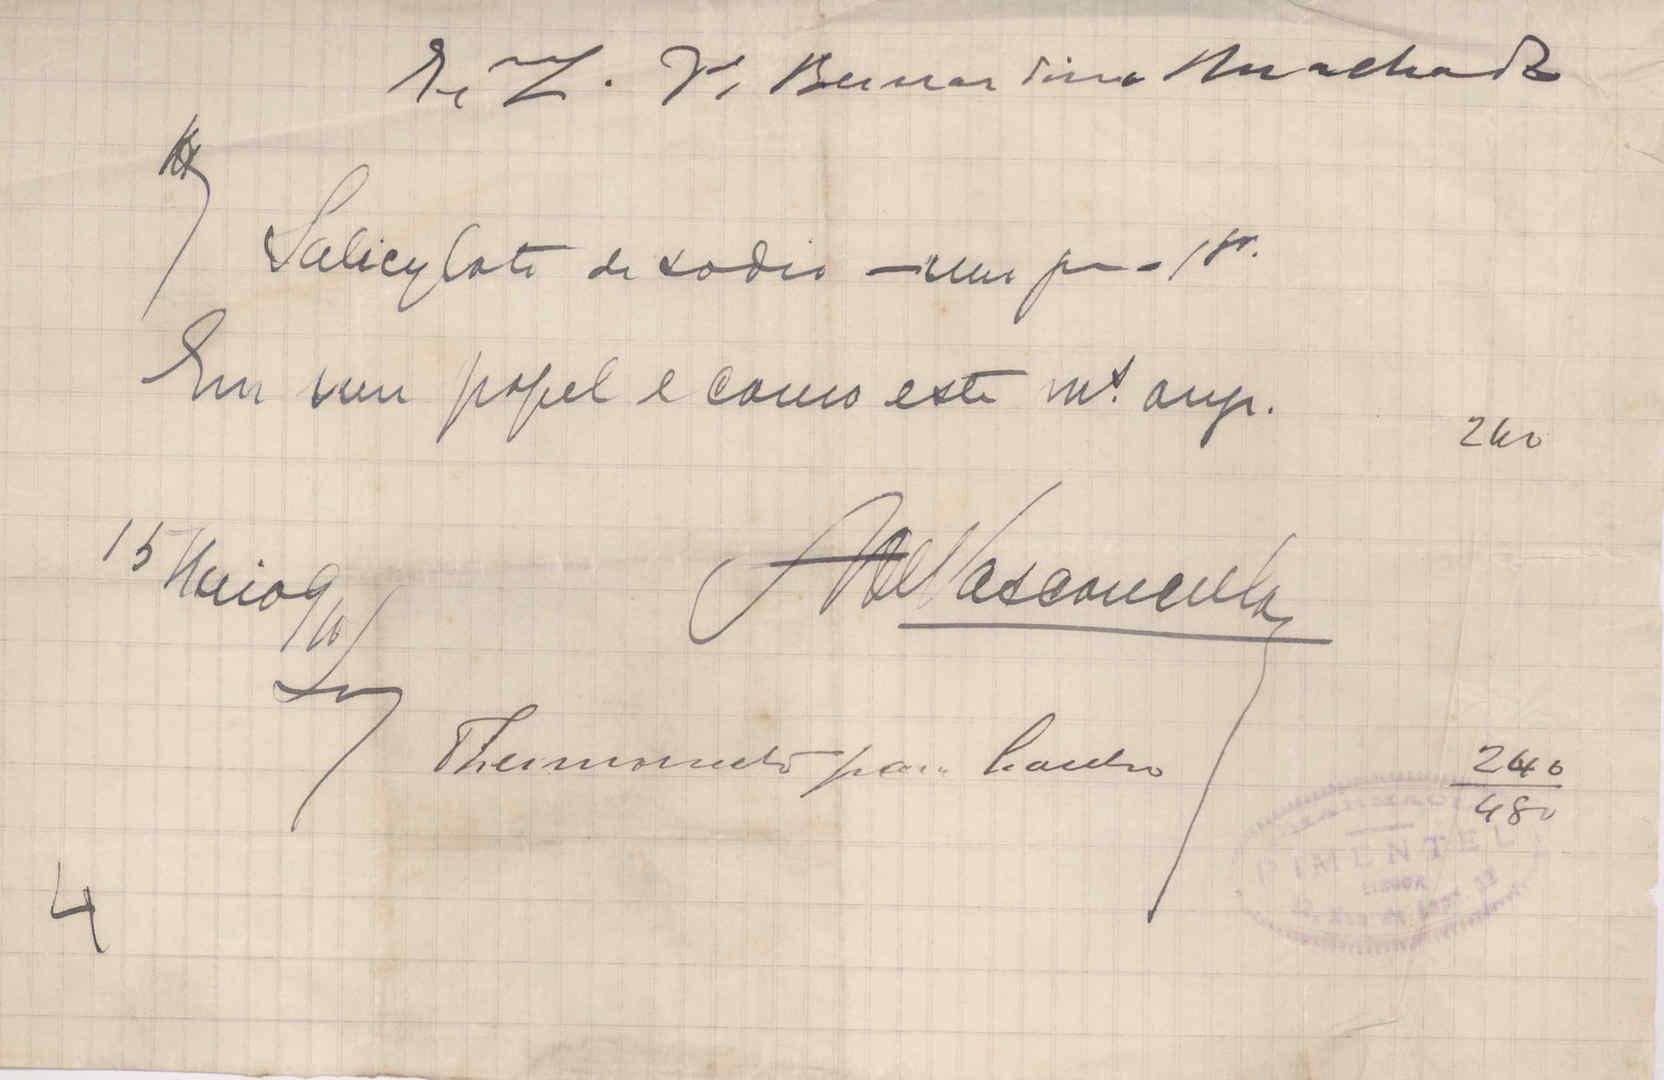 Bernardino Machado
Salicylato de sodio — um gr. — 1 gr.
Em um papel e como este m.s aup.
240
15 Maio 910
Vasconcellos
Thermometro para banho
240
480
PHARMACIA
PIMENTEL
LISBOA
4